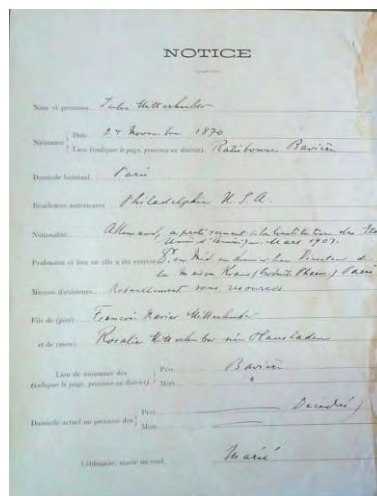 NOTICE
Nom et prénoms Jules Mitterhuber
Naissance Date 27 Novembre 1870
Lieu (indiquer le pays, province ou district) Ratisbonne Bavière
Domicile habituel Paris
Résidences antérieures Philadelphia U.S.A.
Nationalité Allemand, a prêté serment à la Constitution des
Unis d'Amérique Mars 1907.
Profession et lieu où elle a été exercée Dr en Méd. Directeur de
la maison Paris
Moyens d'existence sans ressources
Fils de (père) François Xavier Mitterhuber
et de (mère) Rosalie Mitterhuber née
Lieu de naissance des
(indiquer le pays, province ou district) Père Bavière
Mère "
Domicile actuel ou présumé des Père Décédés
Mère
Célibataire, marié ou veuf. Marié